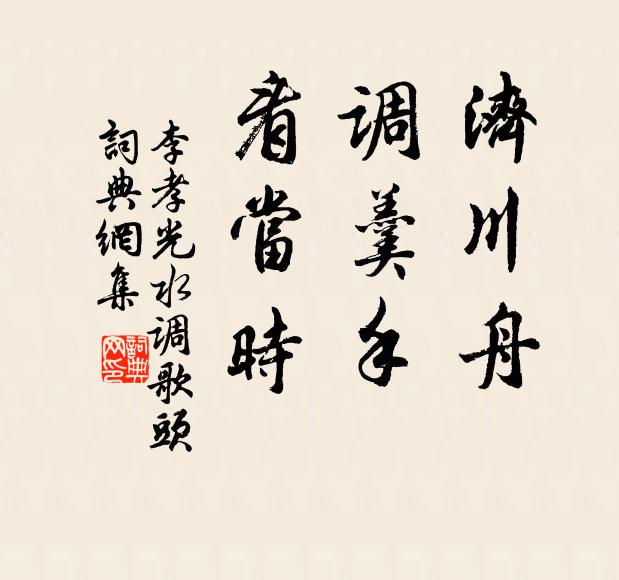 濟川舟
調羹手
看當時
李孝光水調歌頭
詞典網集
詞典網印